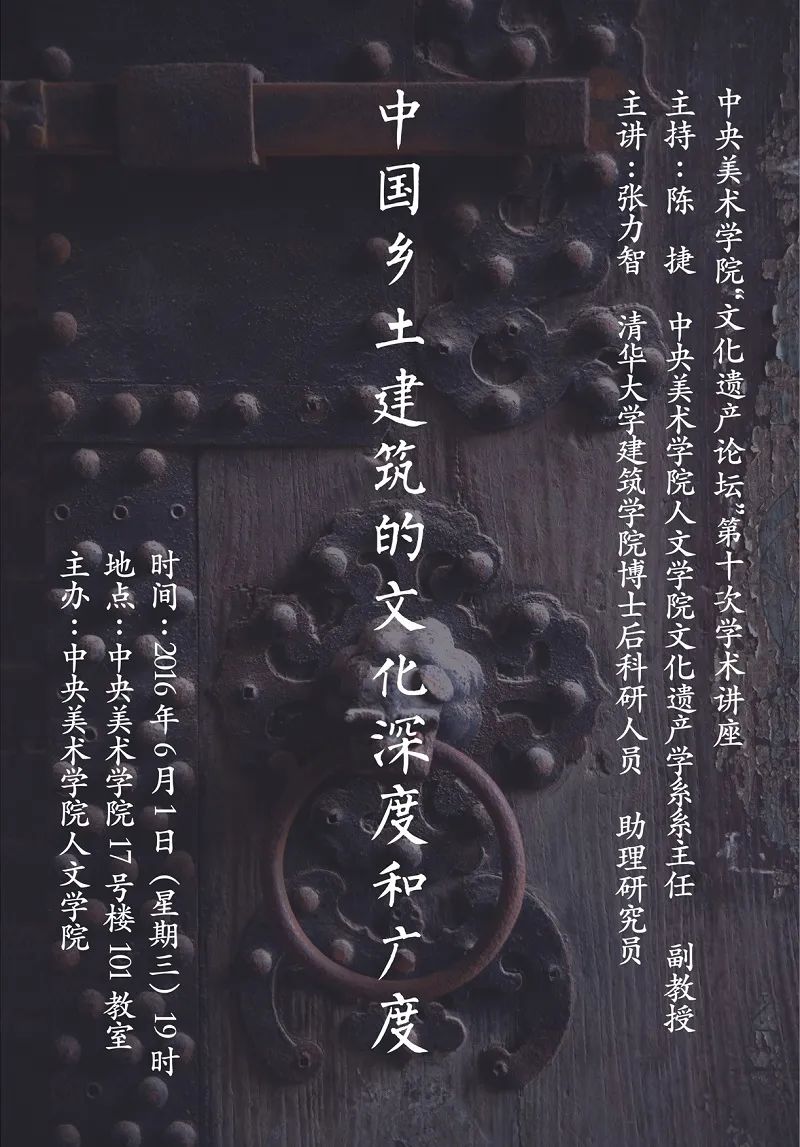 中央美术学院“文化遗产论坛”第十次学术讲座
主持：陈 捷 中央美术学院人文学院文化遗产学系系主任 副教授
主讲：张力智 清华大学建筑学院博士后科研人员 助理研究员
中国乡土建筑的文化深度和广度
时间：2016年6月1日（星期三）19时
地点：中央美术学院17号楼101教室
主办：中央美术学院人文学院